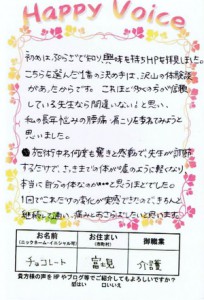 Happy Voice
初めは、ぷらざで知り興味を持ちHPを拝見しました。
こちらを選んだ1番の決め手は、沢山の体験談
があったからです。これほど多くの方が信頼
している先生なら間違いない!と思い、
私の長年悩みの腰痛・肩こりを委ねてみようと
思いました。
施術中は何度も驚きと感動で、先生が
するだけで、さっきまでの体がうそのように軽くなり
本当に自分の体なのか…と思うほどでした。
1回でこれだけの変化が実感できたので、きちんと
継続して通い、痛みとおさらばしたいと思います。
お名前
(ニックネーム・イニシャル可)
お住まい
(市町村)
御職業
チョコレート
富士見
介護
貴方様の声をHPやブログ等でご紹介してもよろしいですか?
はい 口いいえ